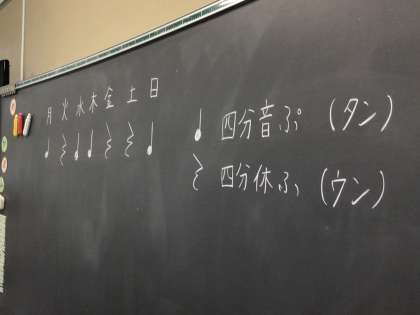 月火水木金土日
四分音ぷ (タン)
四分休ふ (ウン)